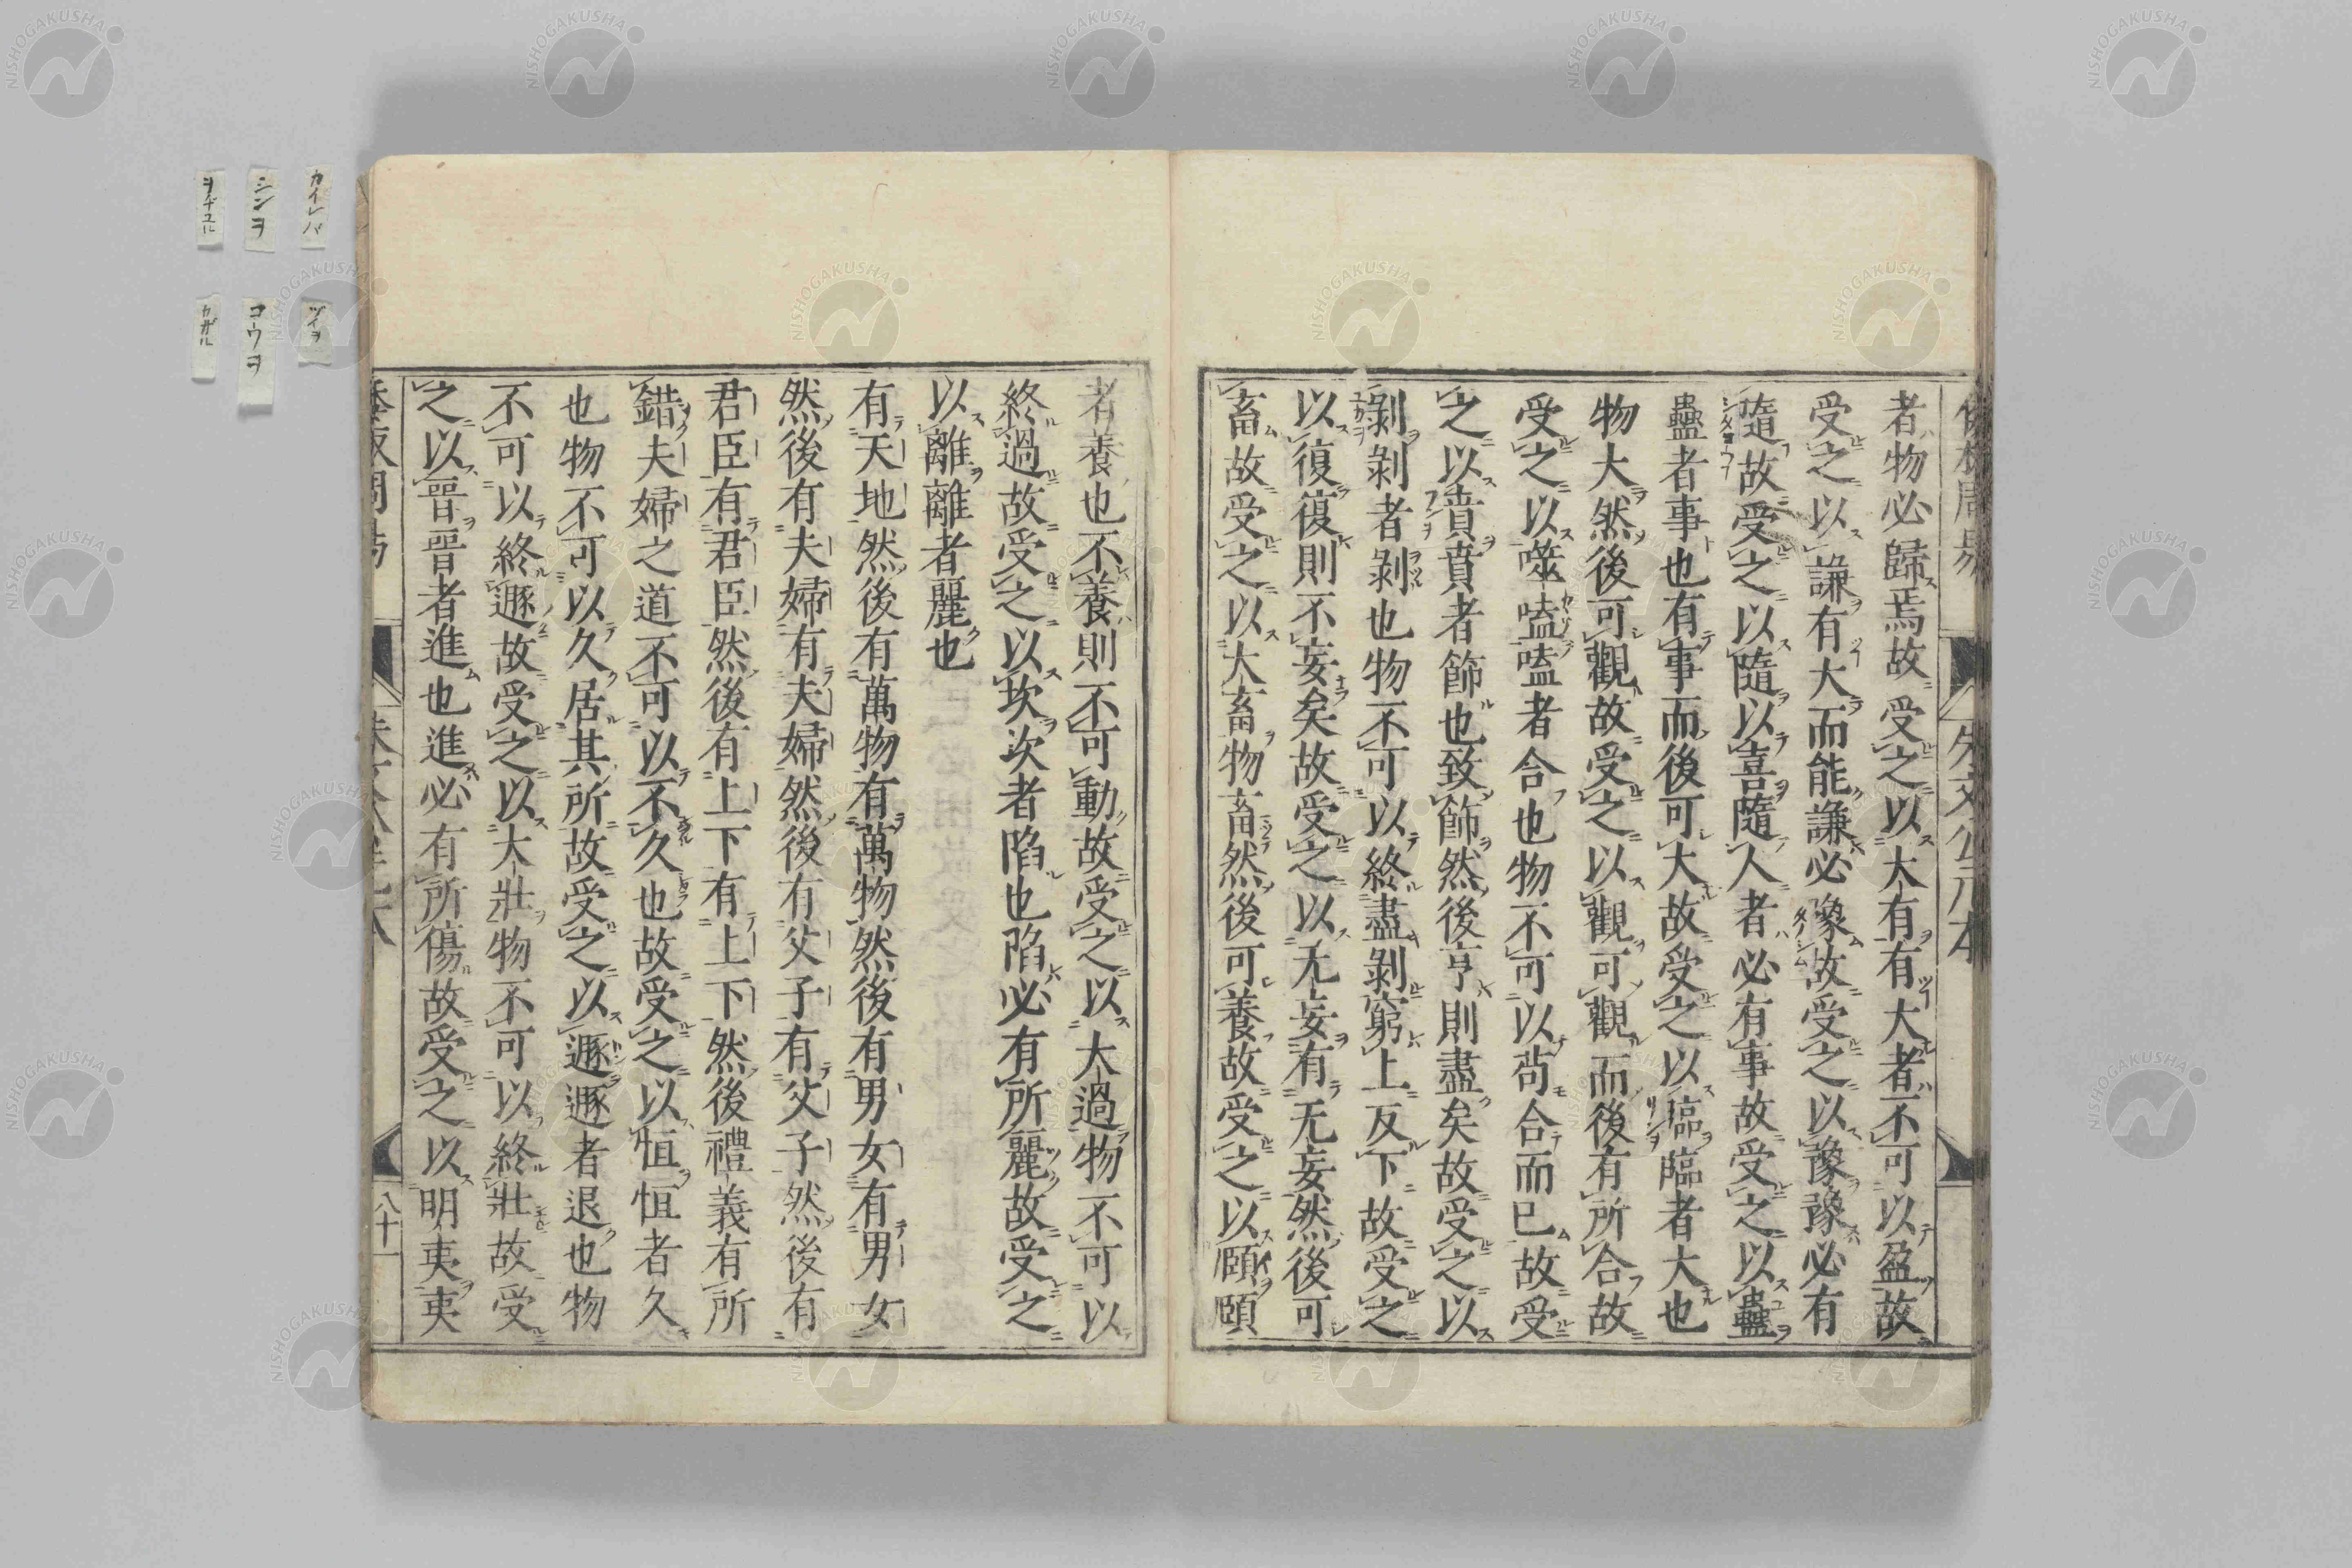 者物必歸焉故受之以大有有大者不可以盈故
受之以謙有大而能謙必豫故受之以豫豫必有
隨故受之以隨以喜隨人者必有事故受之以蠱
蠱者事也有事而後可大故受之以臨臨者大也
物大然後可觀故受之以觀可觀而後有所合故
受之以噬嗑嗑者合也物不可以苟合而已故受
之以賁賁者飾也致飾然後亨則盡矣故受之以
剝剝者剝也物不可以終盡剝窮上反下故受之
以復復則不妄矣故受之以无妄有无妄然後可
畜故受之以大畜物畜然後可養故受之以頤頤
者養也不養則不可動故受之以大過物不可以
終過故受之以坎坎者陷也陷必有所麗故受之
以離離者麗也
有天地然後有萬物有萬物然後有男女有男女
然後有夫婦有夫婦然後有父子有父子然後有
君臣有君臣然後有上下有上下然後禮義有所
錯夫婦之道不可以不久也故受之以恒恒者久
也物不可以久居其所故受之以遯遯者退也物
不可以終遯故受之以大壯物不可以終壯故受
之以晉晉者進也進必有所傷故受之以明夷夷
八十一
カイレバ
シンヲ
ツイヲ
コウヲ
カザル
NISHOGAKUSHA